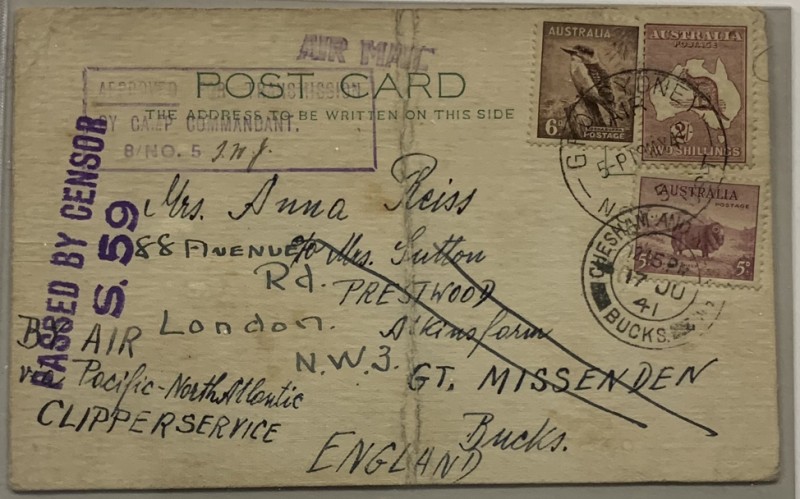 AIR MAIL
POST CARD
THE ADDRESS TO BE WRITTEN ON THIS SIDE
APPROVED FOR TRANSMISSION
BY CAMP COMMANDANT.
8/NO. 5
PASSED BY CENSOR
S. 59
AUSTRALIA
6D
POSTAGE
AUSTRALIA
POSTAGE
2/
TWO SHILLINGS
AUSTRALIA
POSTAGE
5D
G.P.O. SYDNEY
CHESHAM AND
12 45 PM
17 JU
41
BUCKS.
Mrs. Anna Reiss
c/o Mrs. Sutton
PRESTWOOD
Atkinsfarm
GT. MISSENDEN
Bucks.
ENGLAND
88 AVENUE
Rd.
London.
N.W.3.
BY AIR
via Pacific-North Atlantic
CLIPPERSERVICE